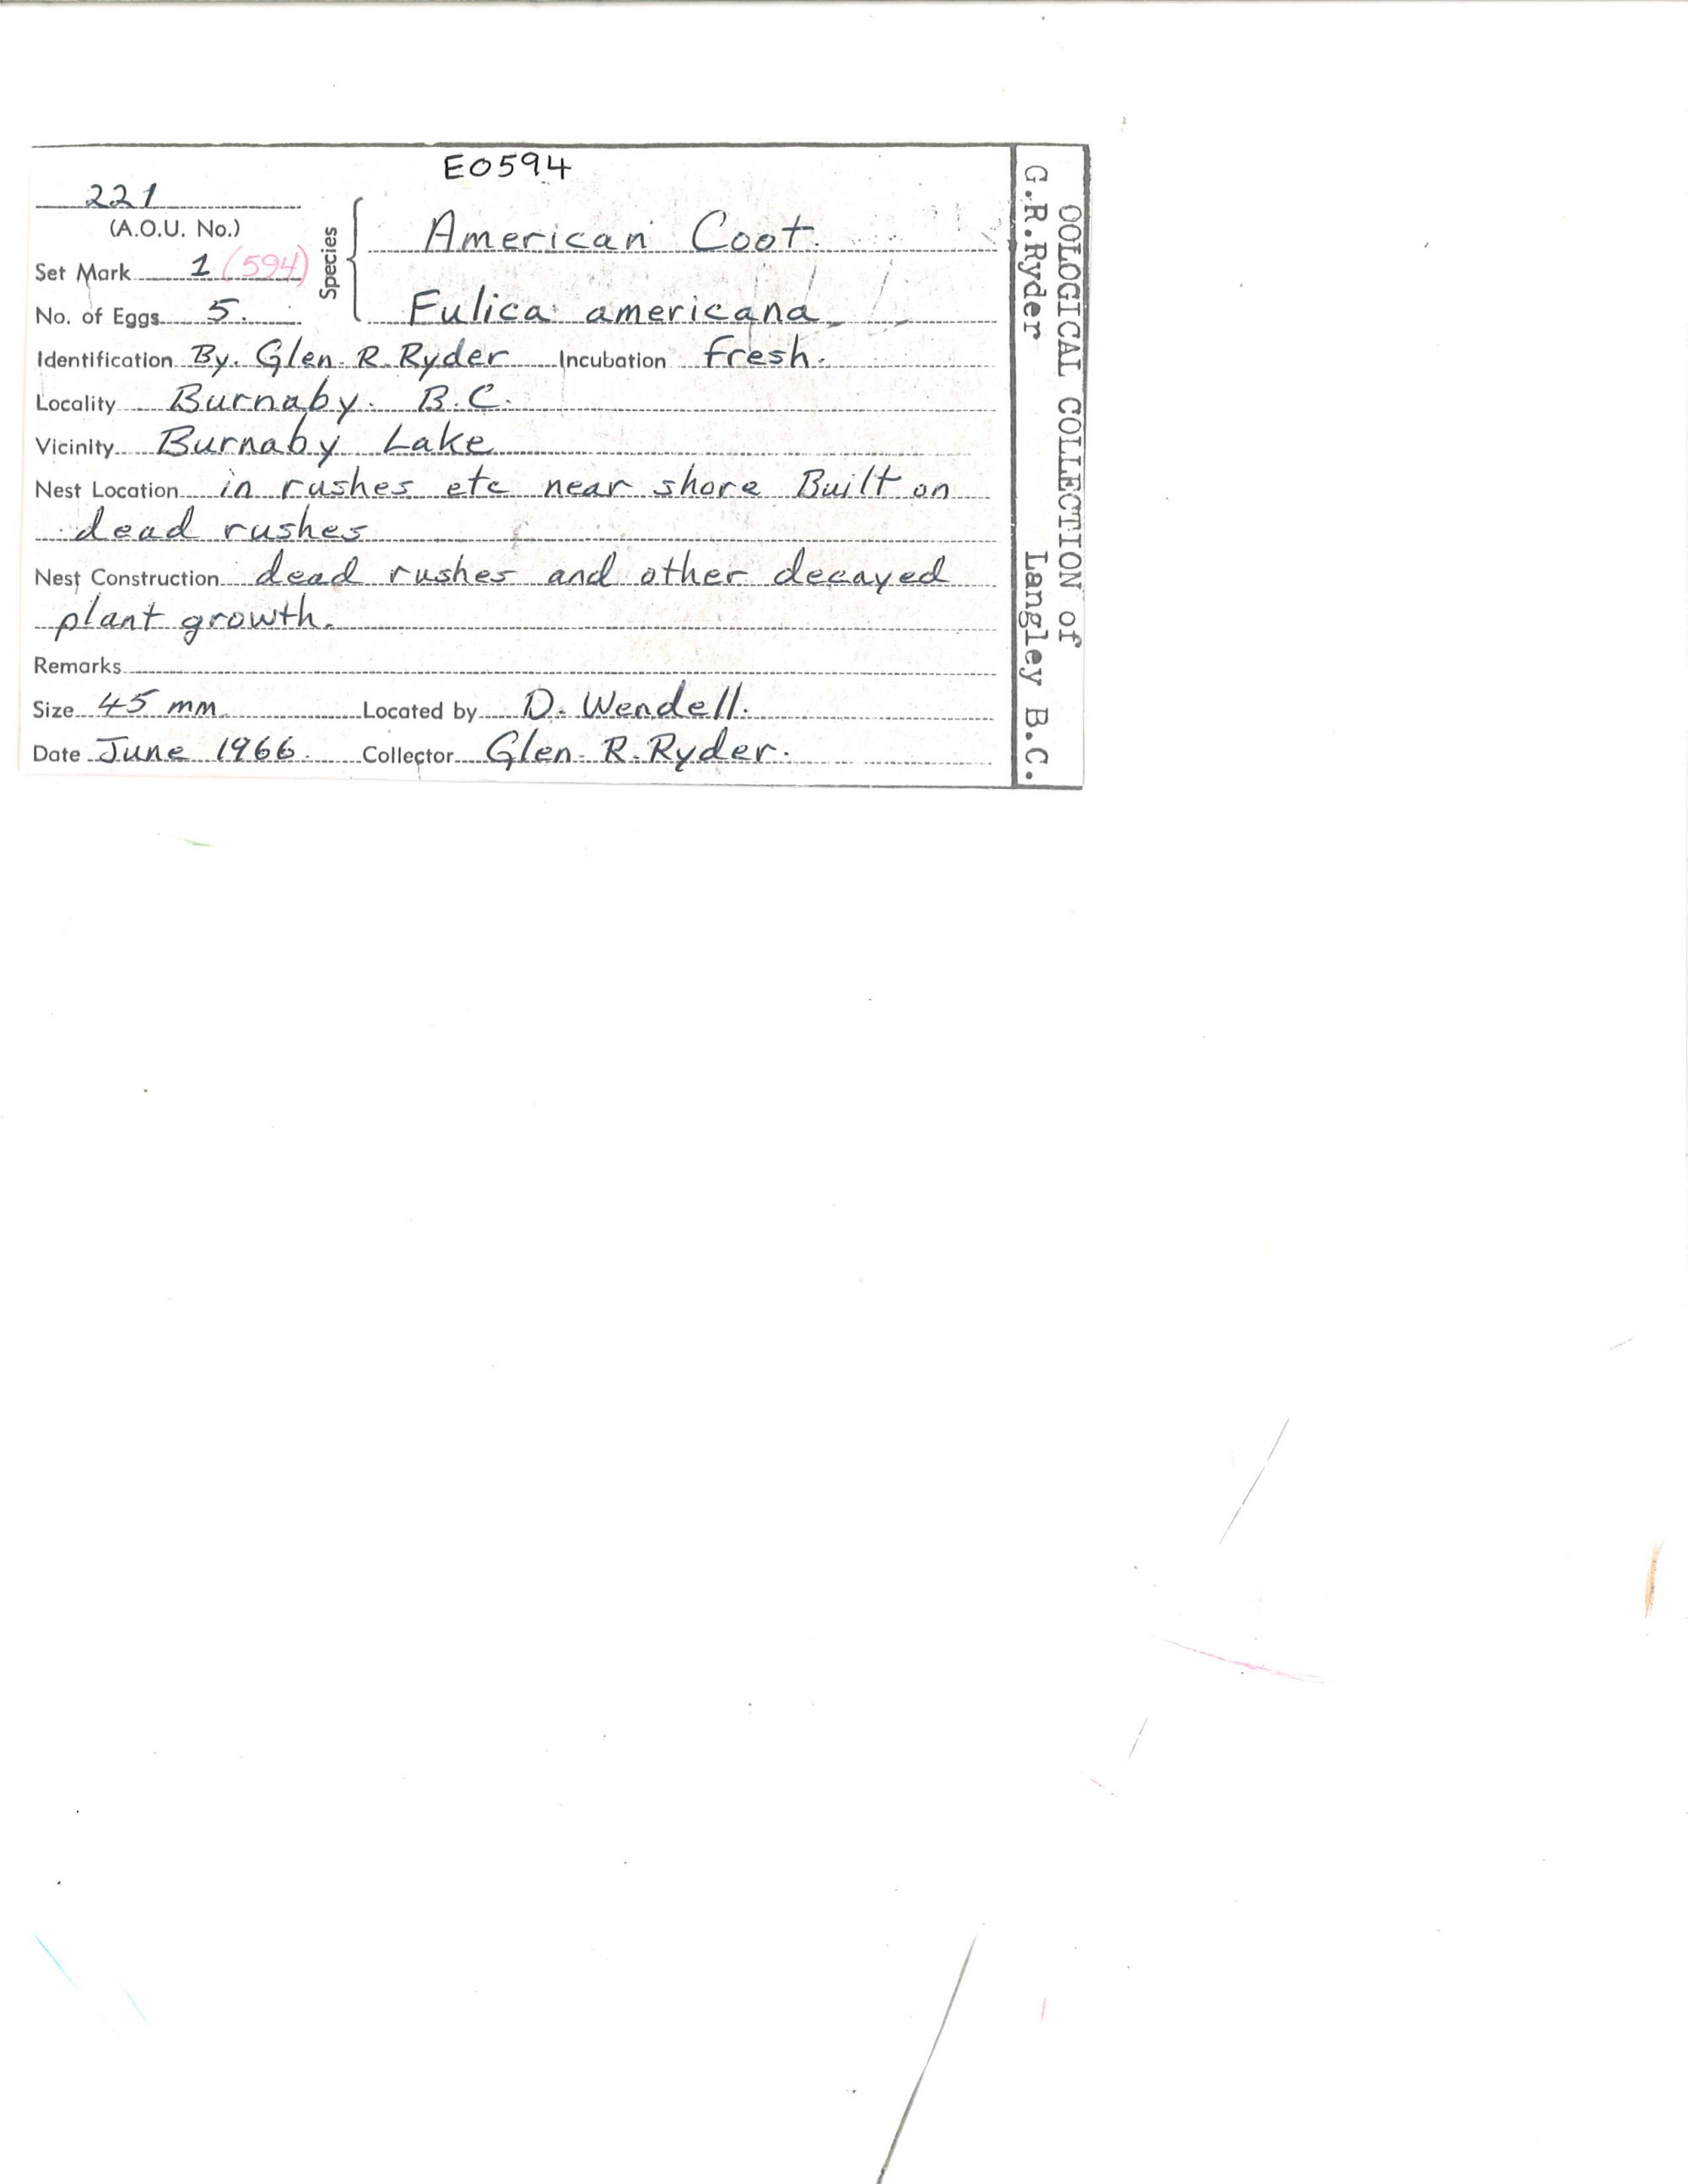 E0594
221
(A.O.U. No.)
Species
American Coot.
Set Mark 1 (594)
No. of Eggs 5.
Fulica americana
Identification By. Glen R. Ryder Incubation fresh.
Locality Burnaby. B.C.
Vicinity Burnaby Lake
Nest Location in rushes etc near shore Built on
dead rushes
Nest Construction dead rushes and other decayed
plant growth.
Remarks
Size 45 mm Located by D. Wendell.
Date June 1966. Collector Glen R. Ryder.
OOLOGICAL COLLECTION of
G.R.Ryder Langley B.C.